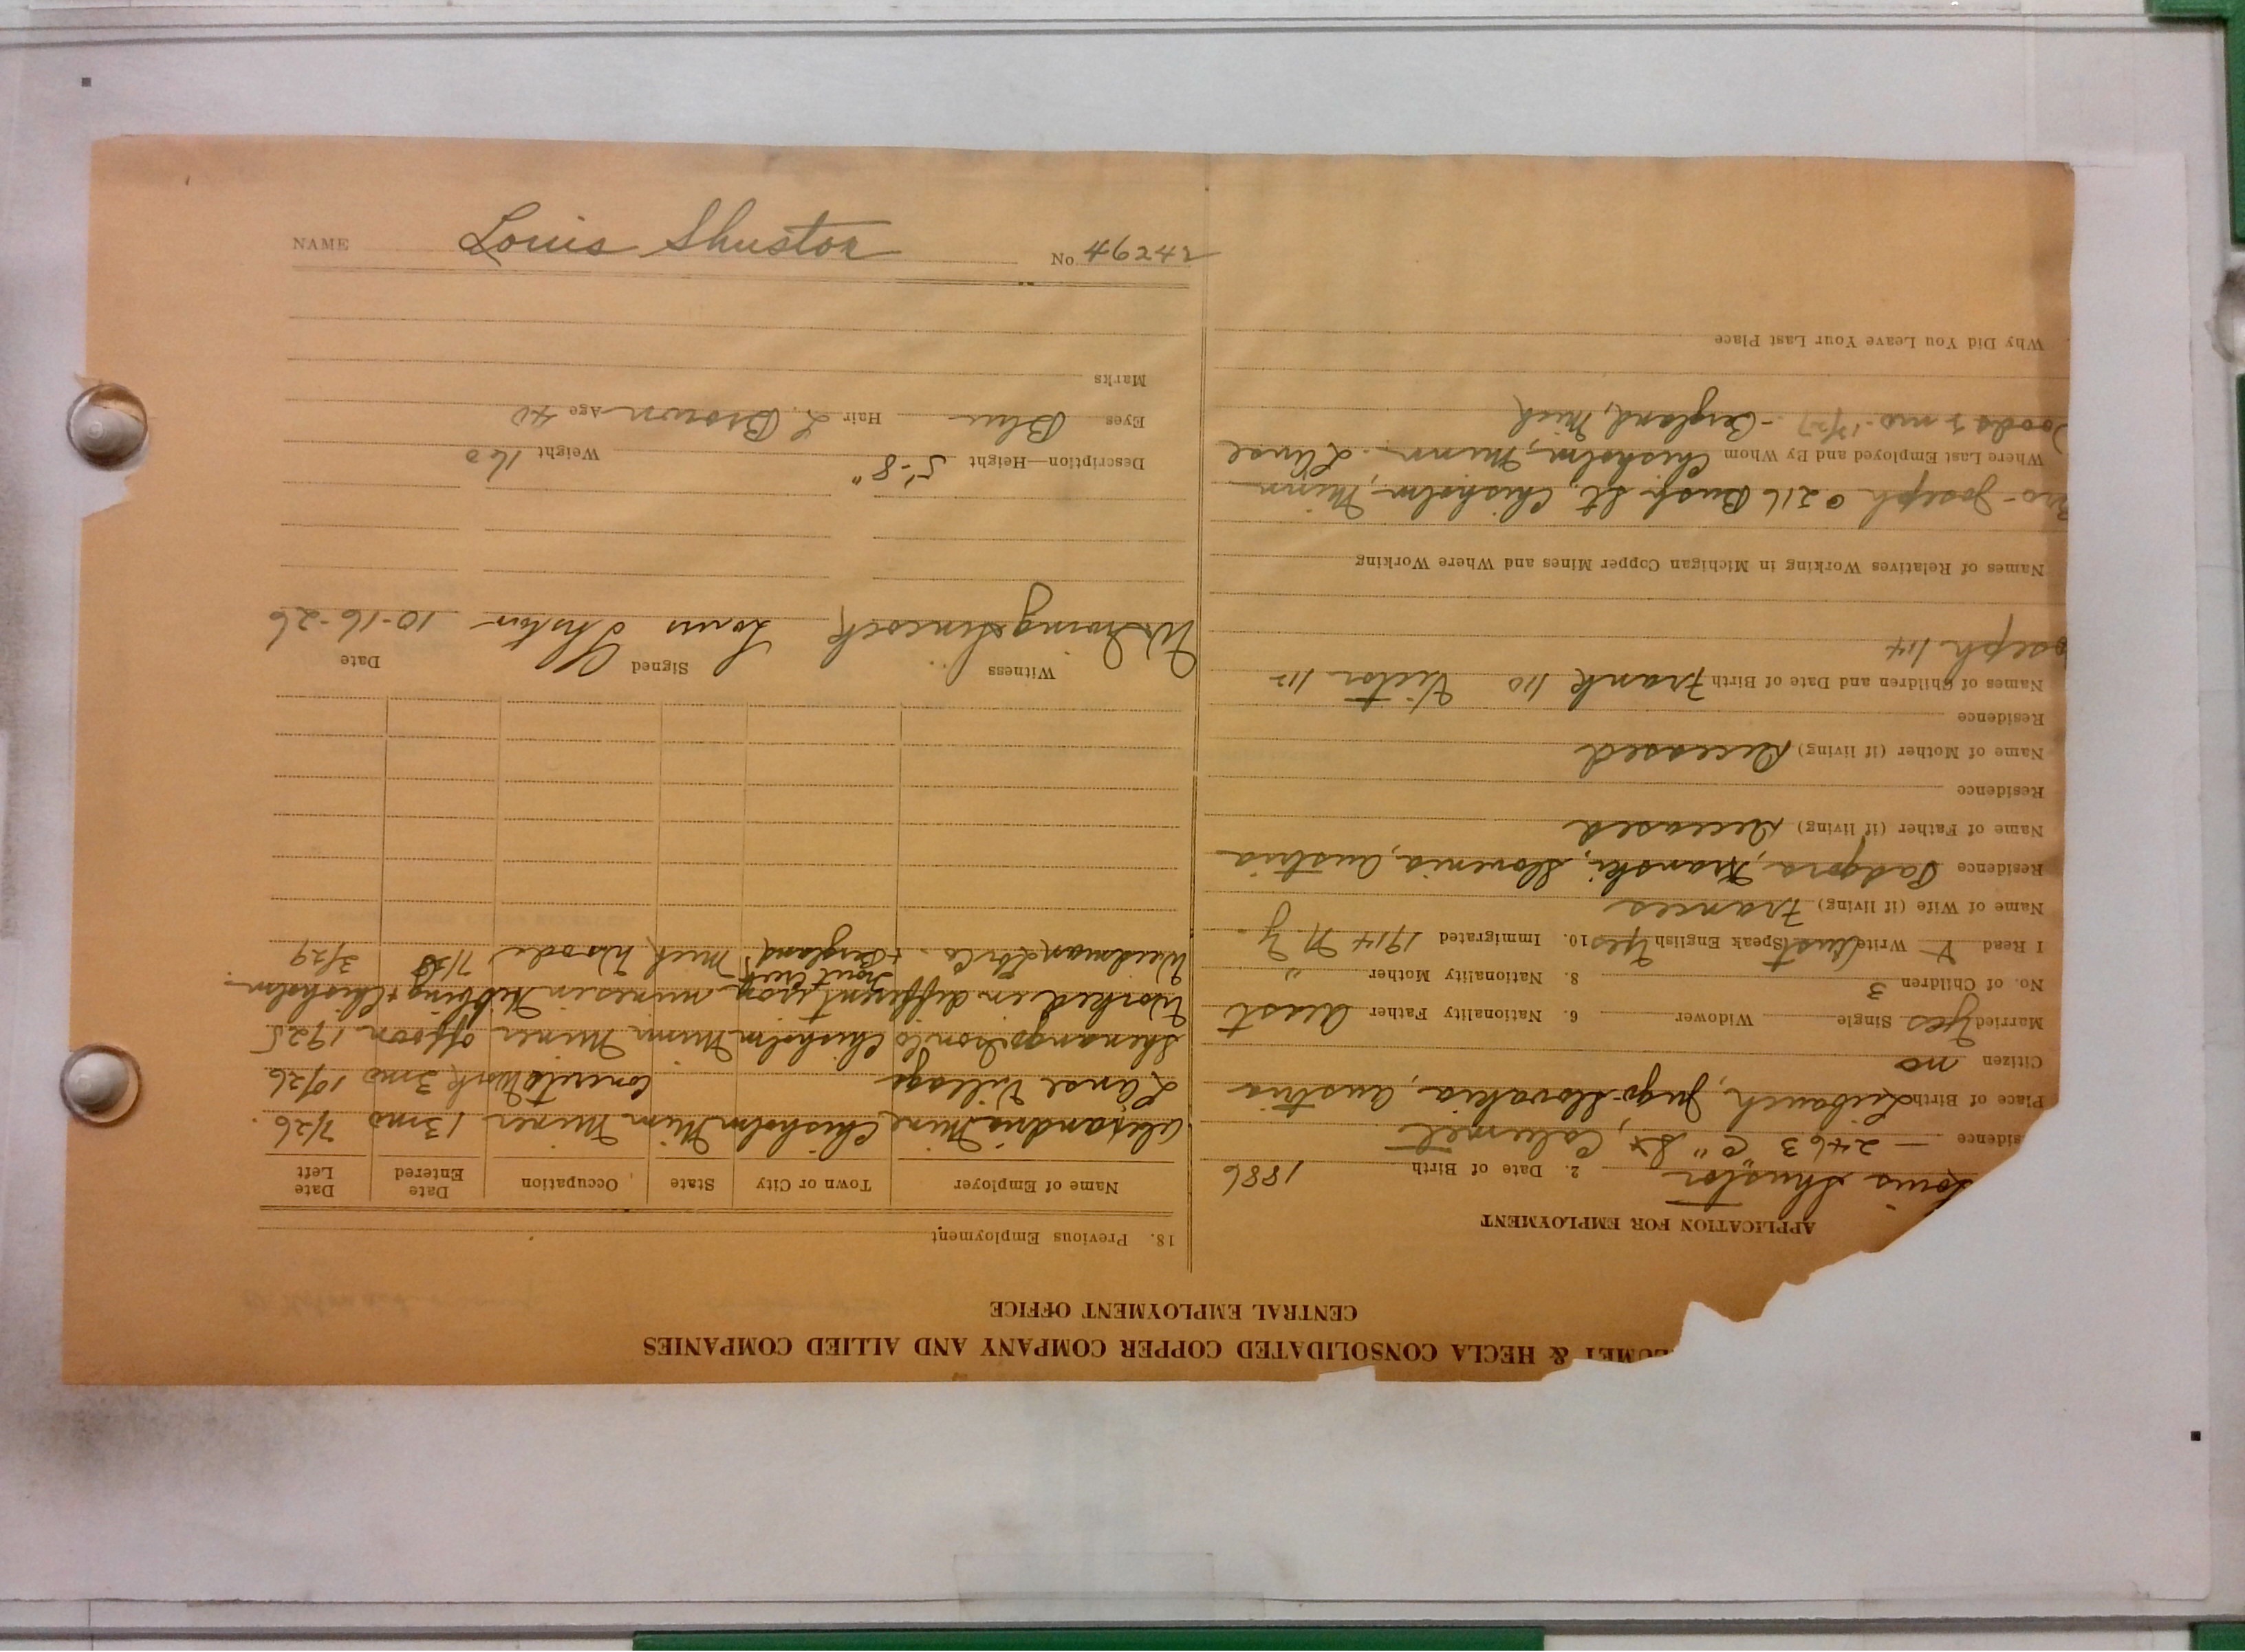 NAME Louis Shustor No 46242
& HECLA CONSOLIDATED COPPER COMPANY AND ALLIED COMPANIES
CENTRAL EMPLOYMENT OFFICE
APPLICATION FOR EMPLOYMENT
Louis Shustor 2. Date of Birth 1886
2463 "C" St, Calumet
Place of Birth Leibauch, Jugo-Slovakia, Austria
Citizen no
Married Yes Single Widower 6. Nationality Father Aust
No. of Children 3 8. Nationality Mother "
I Read Write Aust Speak English Yes 10. Immigrated 1914 N.Y.
Name of Wife (if living) Frances
Residence Padgora, Kranski, Slovenia, Austria
Name of Father (if living) Deceased
Residence
Name of Mother (if living) Deceased
Residence
Names of Children and Date of Birth Frank 110 Victor 112
Joseph 114
Names of Relatives Working in Michigan Copper Mines and Where Working
Bro-Joseph @ 216 Bush St, Chisholm, Minn
Where Last Employed and By Whom Chisholm, Minn. L'anse
Woods 3 mo. - Bergland, Mich
Why Did You Leave Your Last Place
18. Previous Employment
Name of Employer Town or City State Occupation Date Entered Date Left
Alexandria Mine Chisholm Minn Miner 13 mo 7/26.
L'anse Village Concrete Work 3 mo 10/26
Shenango Iron Co Chisholm Minn Miner off & on 1925
Worked in different iron mines in Hibbing & Chisholm
Weidman Lbr Co. Trout Creek & Bergland, Mich Woods 3/29
Witness Signed Date
W. Irving Lincock Louis Shstor 10-16-26
Description—Height 5'-8" Weight 160
Eyes Blue Hair L. Brown Age 40
Marks